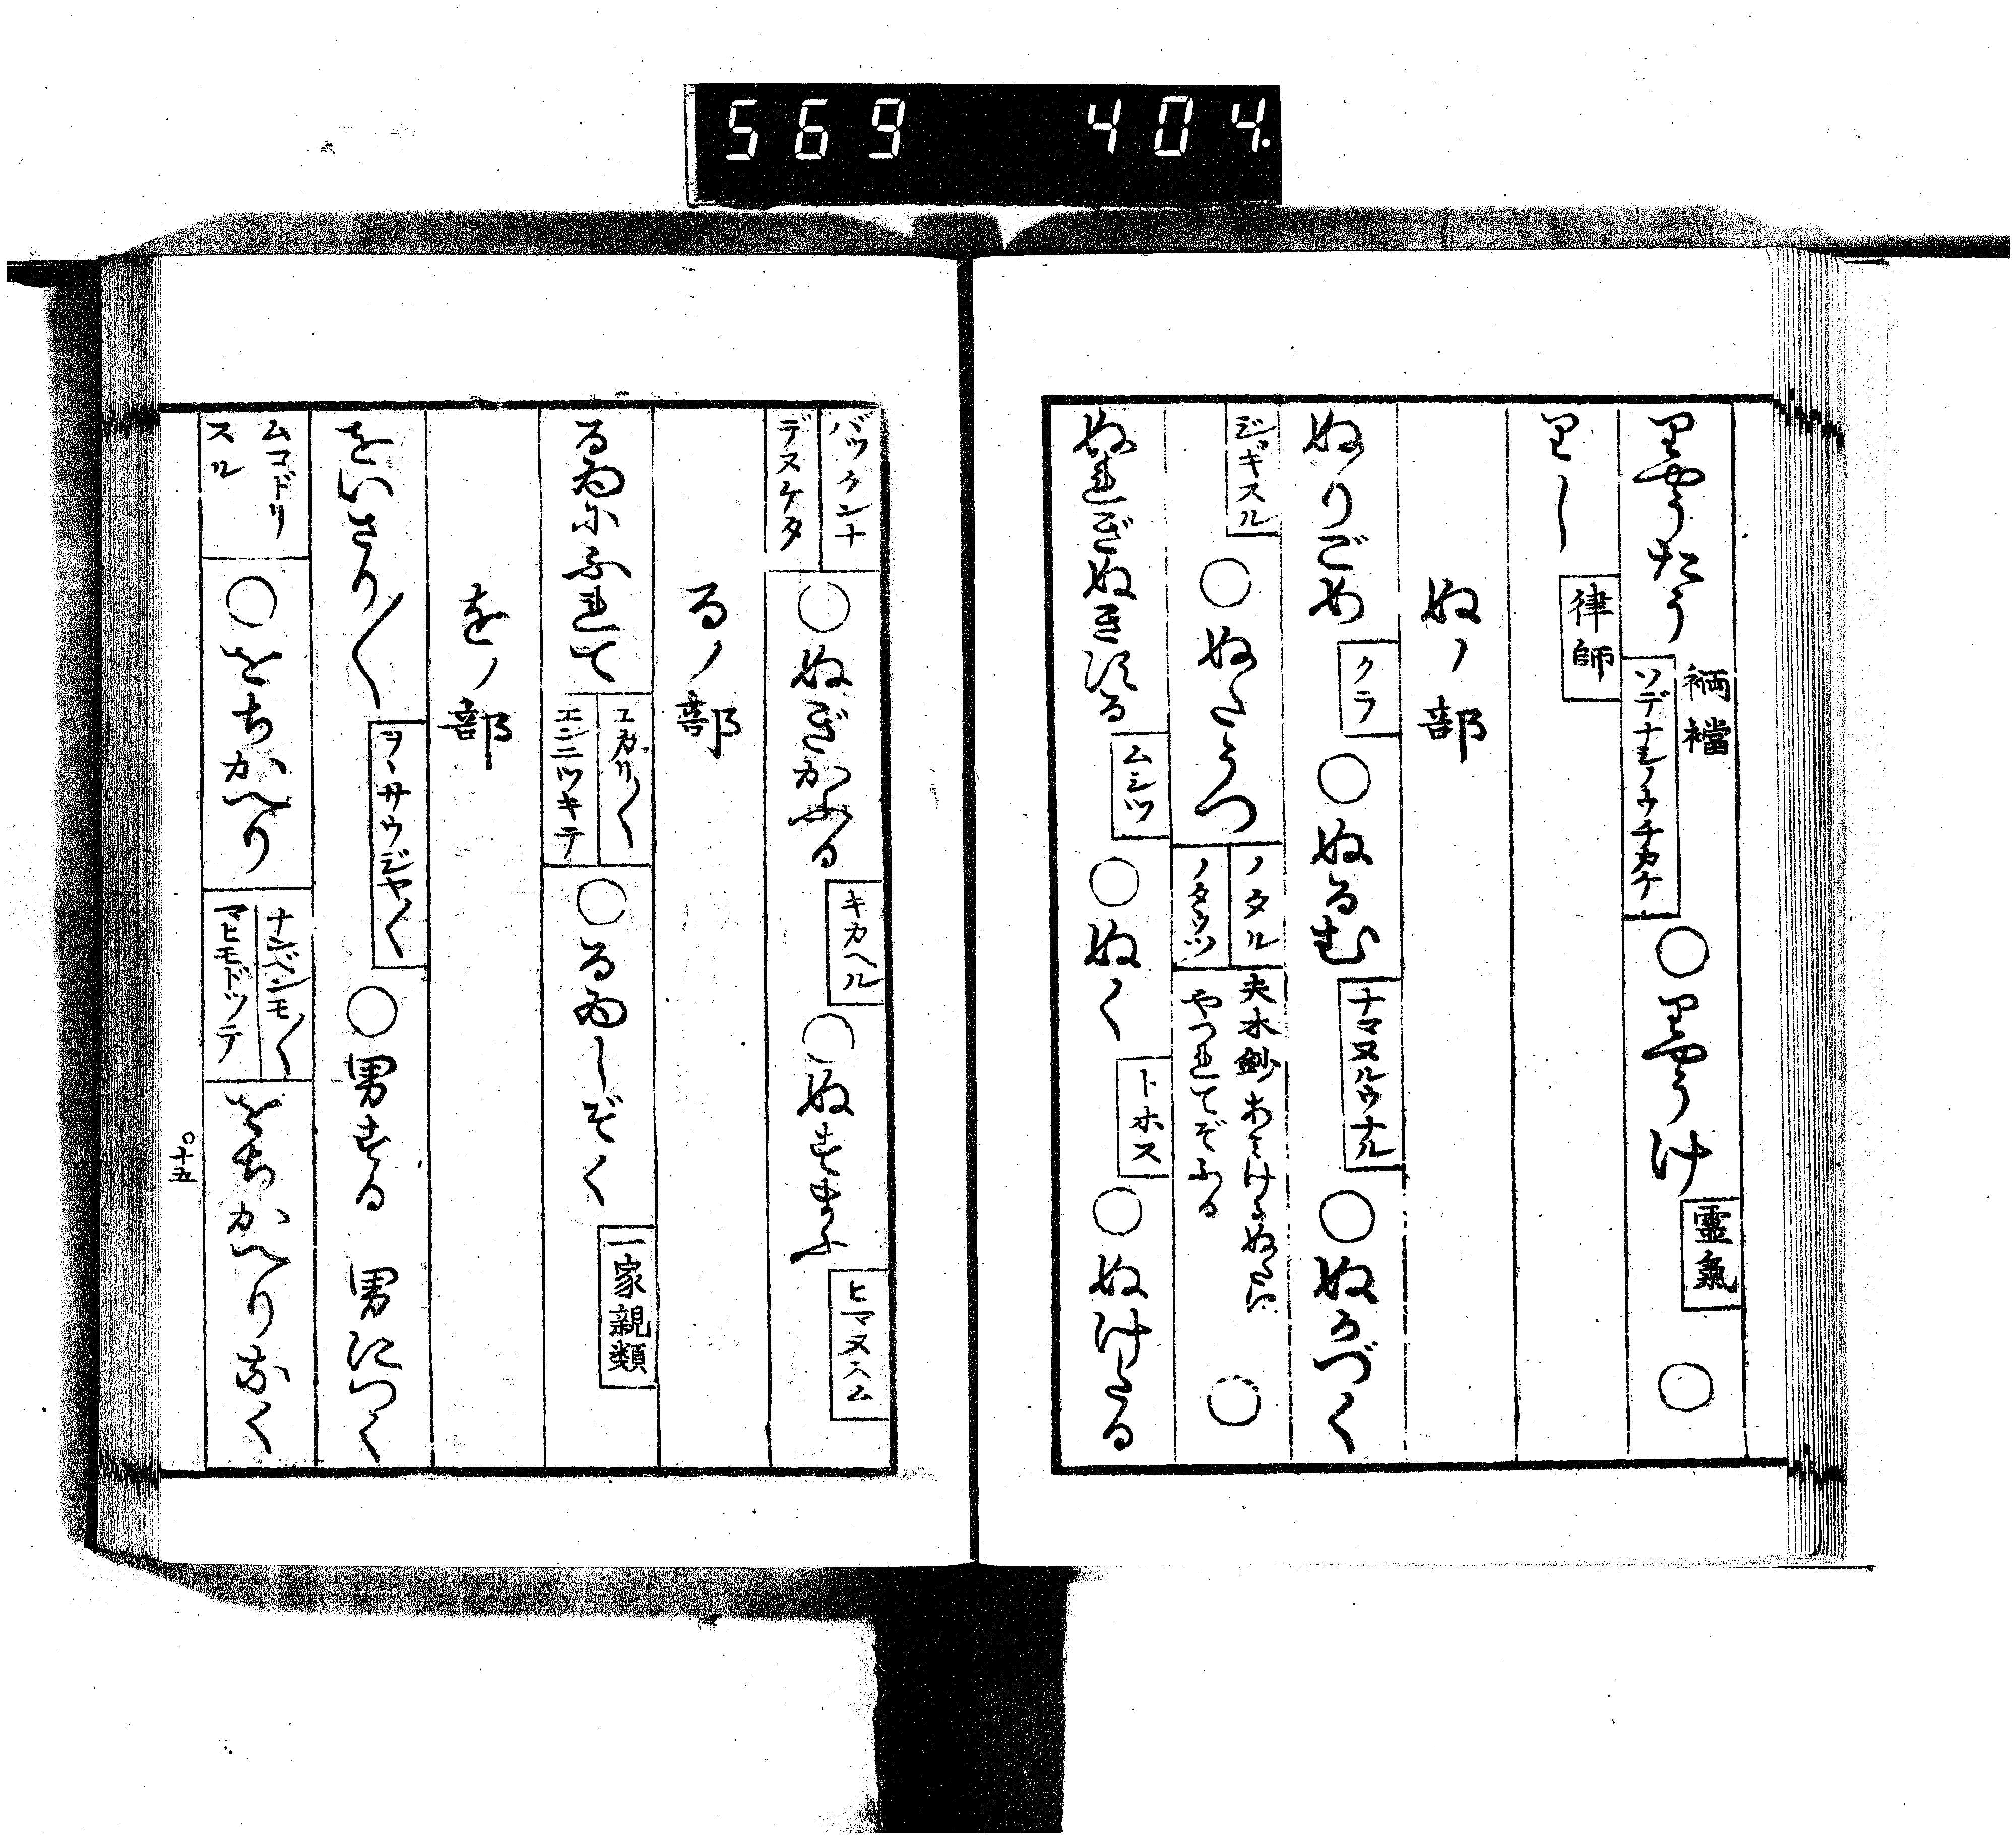 569 404.
りやうたう 裲襠 ソデナシノウチカケ ○りやうけ 霊氣 ○
りし 律師
ぬノ部
ぬりごめ クラ ○ぬるむ ナマヌルウナル ○ぬかづく
ジギスル ○ぬたうつ ノタル ノタウツ 夫木鈔 やつれてぞふる ○
ぬれぎぬきする ムシツ ○ぬく トホス ○ぬけたる
バツクンナ デヌケタ ○ぬぎかふる キカヘル ○ぬすまふ ヒマヌスム
るノ部
るゐにふれて ユカリ〱 エンニツキテ ○るゐしぞく 一家親類
をノ部
をいさり〱 ヲヽサウジヤ〱 ○男する 男につく
ムコドリ スル ○をちかへり ナンベンモ〱 マヒモドツテ をちかへりなく
十五